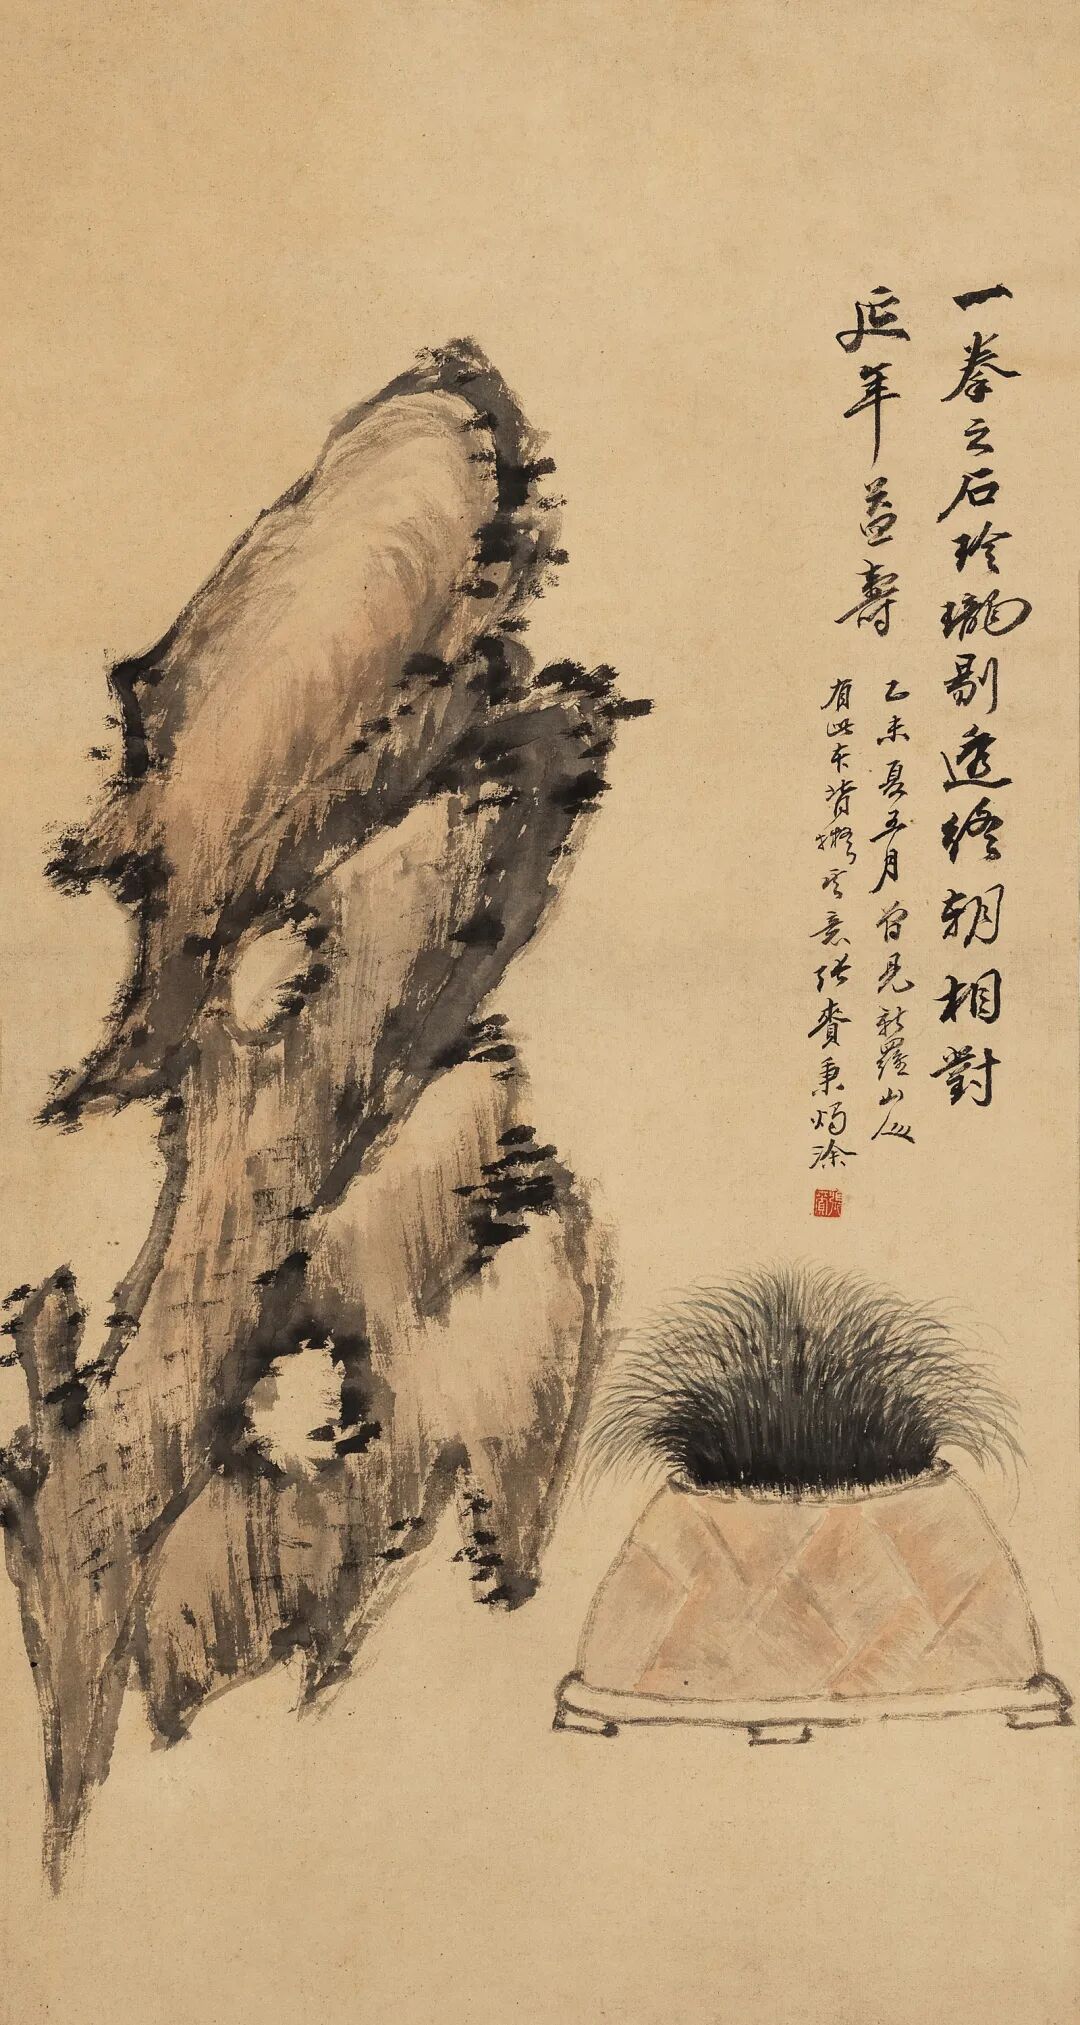 一拳之石玲瓏剔透終朝相對
延年益壽
乙未夏五月曾見新羅山人
有此本背擬其意張賨秉燭塗